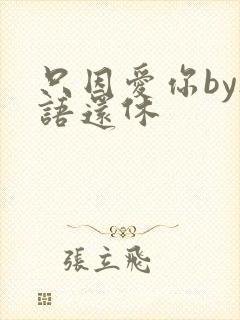 只因愛你by
語還休
張立飛